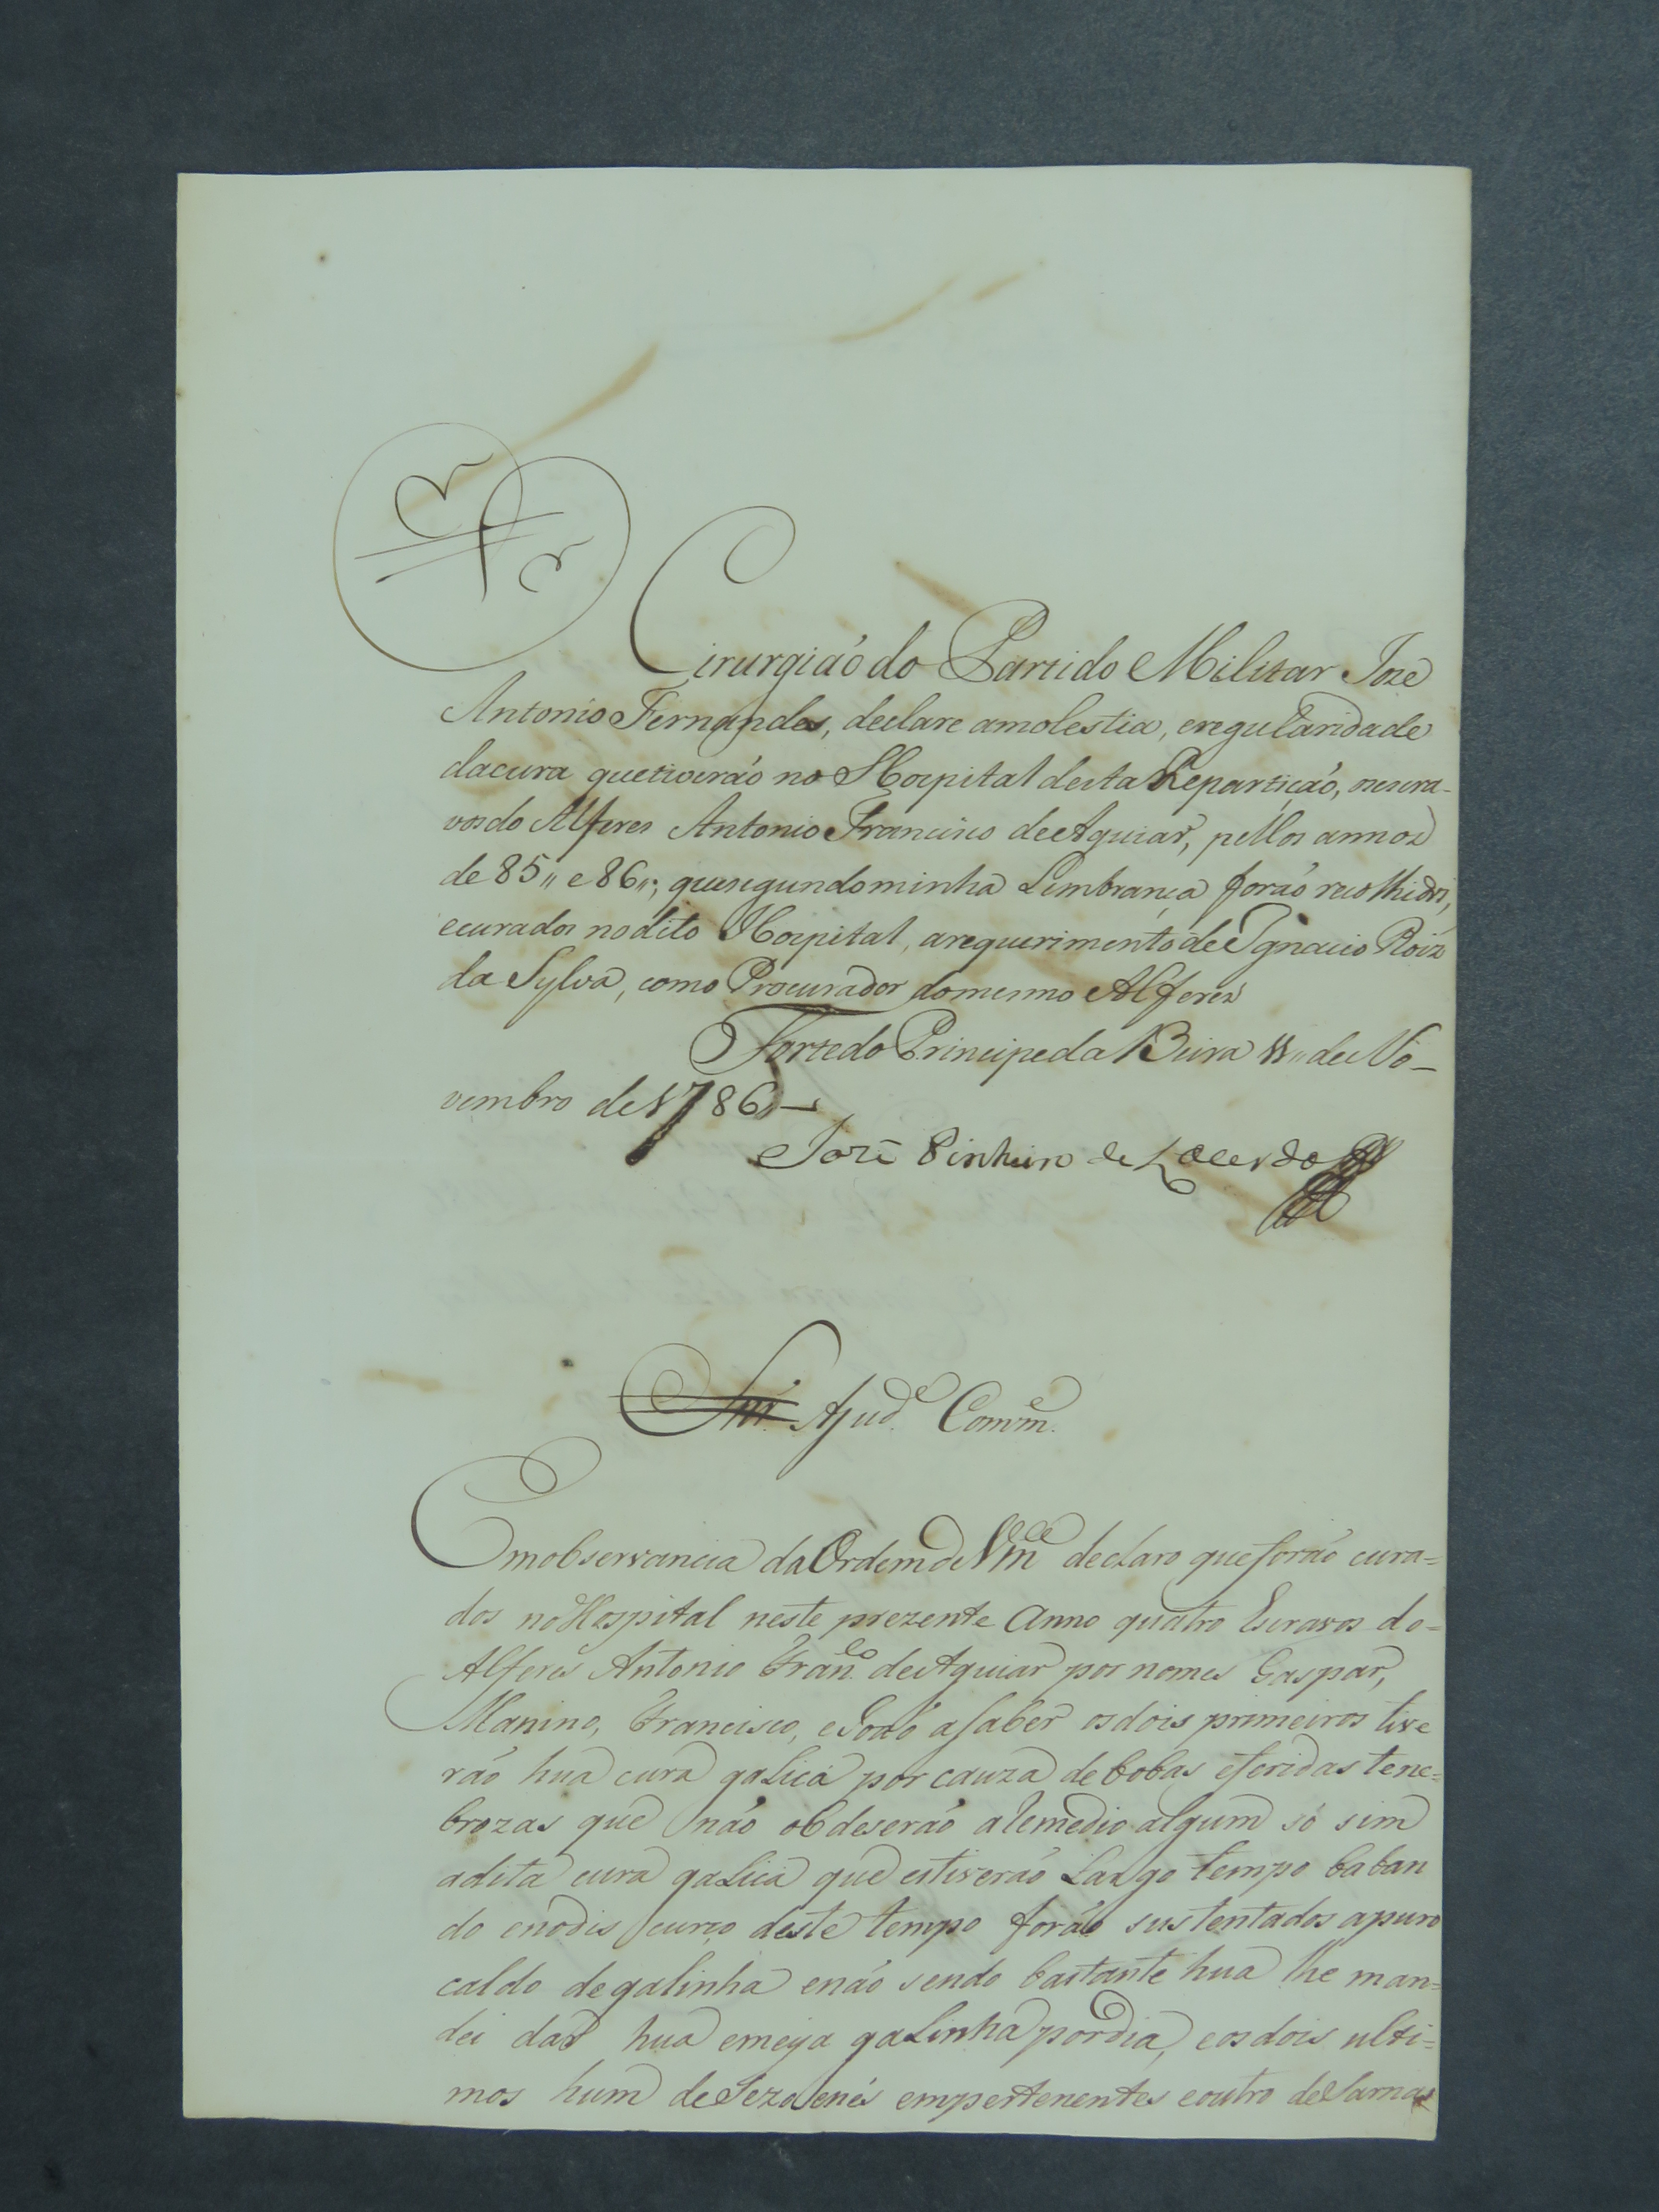 Cirurgiaõ do Partido Militar Joze
Antonio Fernandes, declare amolestia, eregularidade
dacura quetiveraõ no Hospital desta Repartiçaõ, osescra-
vosdo Alferes Antonio Francisco deAguiar, pellos annos
de 85,, e 86,,; quesegundominha Lembrança foraõ recolhidos,
ecurados nodito Hospital, arequerimento de Ignacio Roiz
da Sylva, como Procurador domesmo Alferes
Fortedo Principeda Beira 11,, deNo-
vembro de 1786,,
Joze Pinheiro de Lacerda
Snr. Ajud.e Comm.e
Emobservancia daOrdemdeVm.ce declaro queforaõ cura=
dos noHospital neste prezente Anno quatro Escravos do=
Alferes Antonio Fran.co deAguiar por nomes Gaspar,
Manino, Francisco, eJoaõ asaber osdois primeiros tive
raõ hua cura galica por cauza de bobas eferidas tene=
brozas que naõ obdeseraõ aRemedio algum só sim
adita cura galica que estiveraõ Largo tempo baban
do enodis curço deste tempo foraõ sustentados apuro
caldo degalinha enaõ sendo bastante hua lhe man=
dei dar hua emeya galinha pordia, eosdois ulti=
mos hum deSezoenes empertenentes eoutro deSarnas